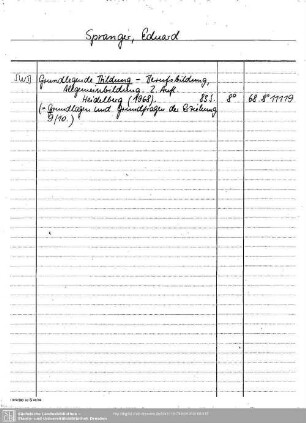 Spranger, Eduard
SWD Grundlegende Bildung - Berufsbildung,
Allgemeinbildung. 2. Aufl.
Heidelberg (1968). 83 S. 8° 68.8° 11119
(= Grundlagen und Grundfragen der Erziehung
9/10.)
Sächsische Landesbibliothek -
Staats- und Universitätsbibliothek Dresden